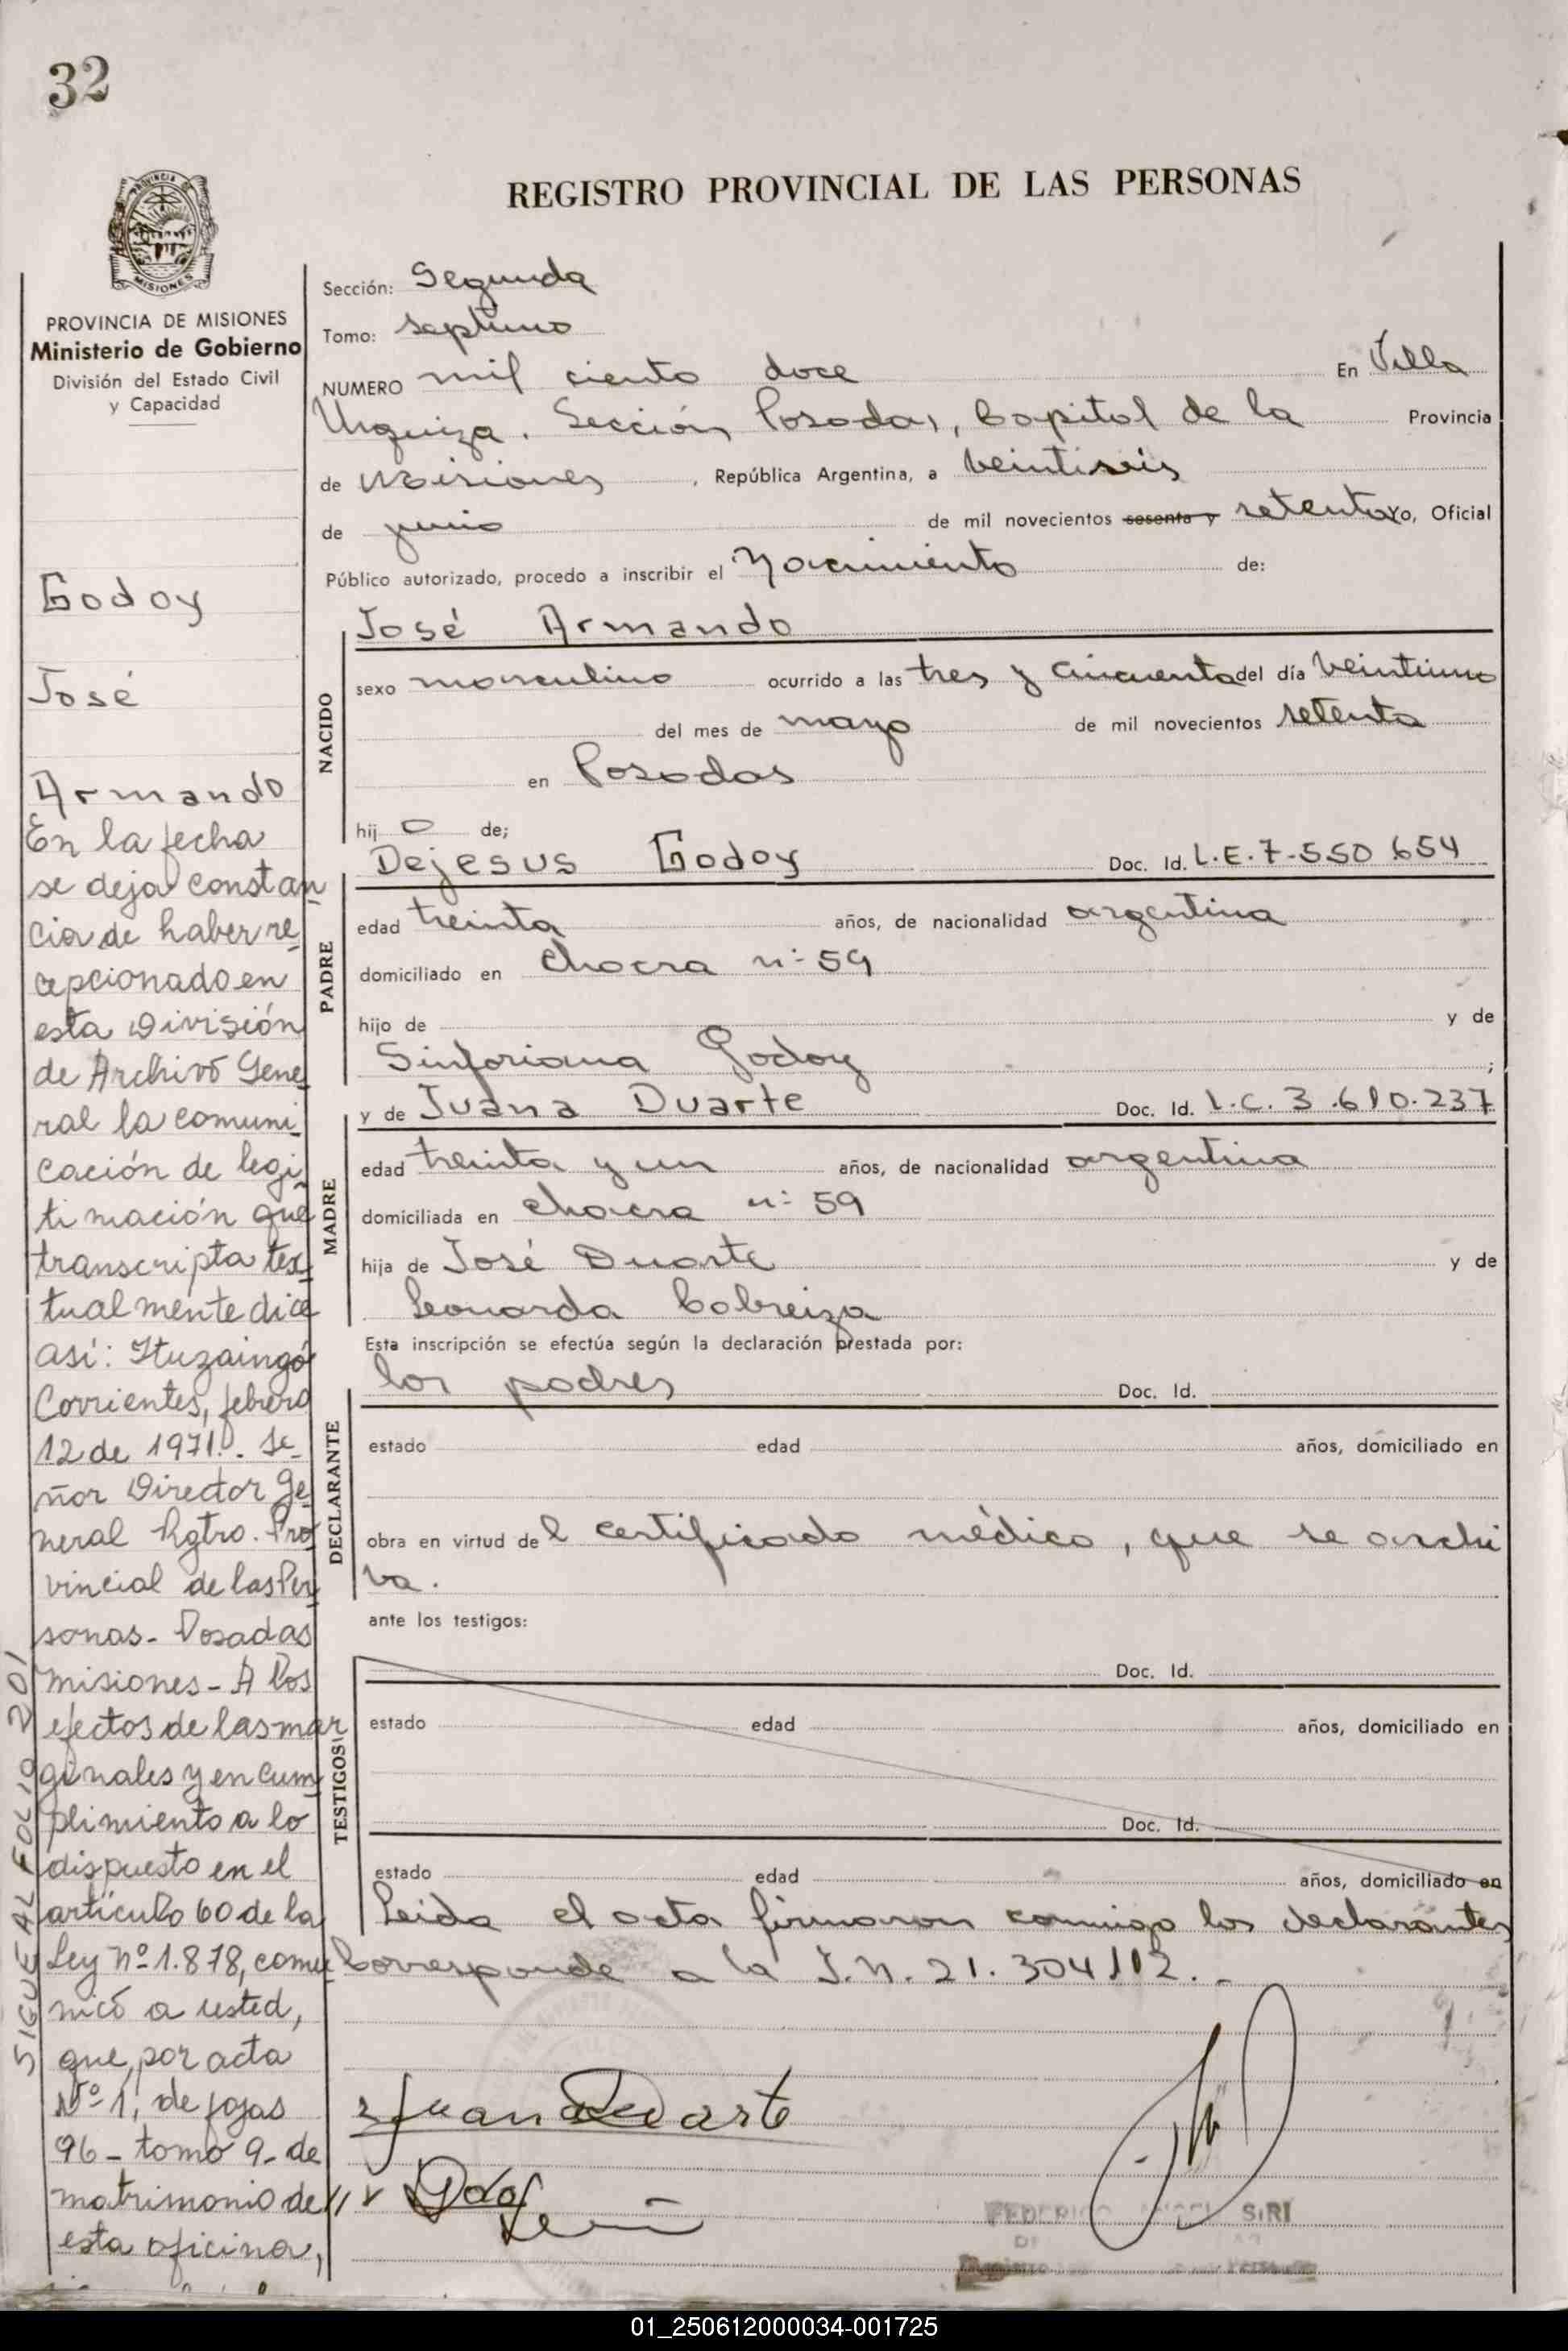 32
PROVINCIA DE
MISIONES
REGISTRO PROVINCIAL DE LAS PERSONAS
PROVINCIA DE MISIONES
Ministerio de Gobierno
División del Estado Civil
y Capacidad
Godoy
José
Armando
En la fecha
se deja constan
cia de haber re
cepcionado en
esta División
de Archivo Gene
ral la comuni
cación de legi
timación que
transcripta tex
tualmente dice
así: Ituzaingó
Corrientes, febrero
12 de 1971. Se-
ñor Director Ge
neral Rgtro. Pro
vincial de las Per
sonas - Posadas
Misiones - A los
efectos de las mar
ginales y en cum
plimiento a lo
dispuesto en el
artículo 60 de la
Ley Nº 1.878, comu
nicó a usted,
que, por acta
Nº 1, de fojas
96 - tomo 9 - de
matrimonio de
esta oficina,
SIGUE AL FOLIO 201
Sección: Segunda
Tomo: septimo
NUMERO mil ciento doce En Villa
Urquiza. Sección Posadas, Capital de la Provincia
de Misiones, República Argentina, a veintiseis
de junio de mil novecientos sesenta y setenta yo, Oficial
Público autorizado, procedo a inscribir el Nacimiento de:
NACIDO
José Armando
sexo masculino ocurrido a las tres y cincuenta del día veintiuno
del mes de mayo de mil novecientos setenta
en Posadas
hijo de;
PADRE
Dejesus Godoy Doc. Id. L.E. 7-550 654
edad treinta años, de nacionalidad argentina
domiciliado en chacra nº 59
hijo de y de
Sinforiana Godoy ;
MADRE
y de Juana Duarte Doc. Id. L.C. 3.610.237
edad treinta y un años, de nacionalidad argentina
domiciliada en chacra nº 59
hija de José Duarte y de
Leonarda Cobreiza
Esta inscripción se efectúa según la declaración prestada por:
DECLARANTE
los padres Doc. Id.
estado edad años, domiciliado en
obra en virtud del certificado médico, que se archi
va.
ante los testigos:
TESTIGOS
Doc. Id.
estado edad años, domiciliado en
Doc. Id.
estado edad años, domiciliado en
Leida el acta firmaron conmigo los declarantes
Corresponde a la I.N. 21.304.112.-
Juana Duarte
FEDERICO ANGEL SIRI
01_250612000034-001725